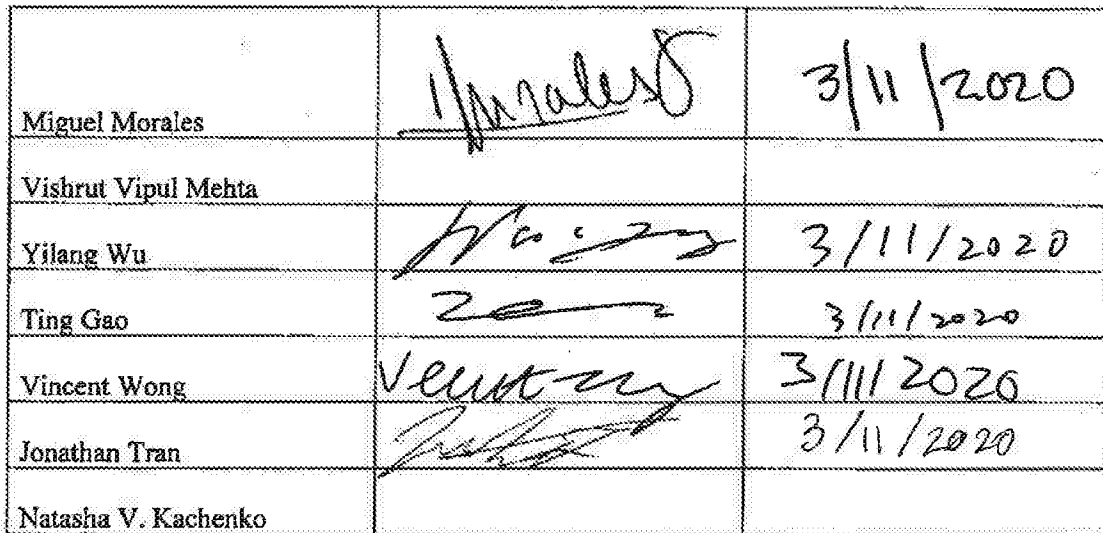 Miguel Morales Morales 3/11/2020
Vishrut Vipul Mehta
Yilang Wu 3/11/2020
Ting Gao 3/11/2020
Vincent Wong 3/11/2020
Jonathan Tran 3/11/2020
Natasha V. Kachenko